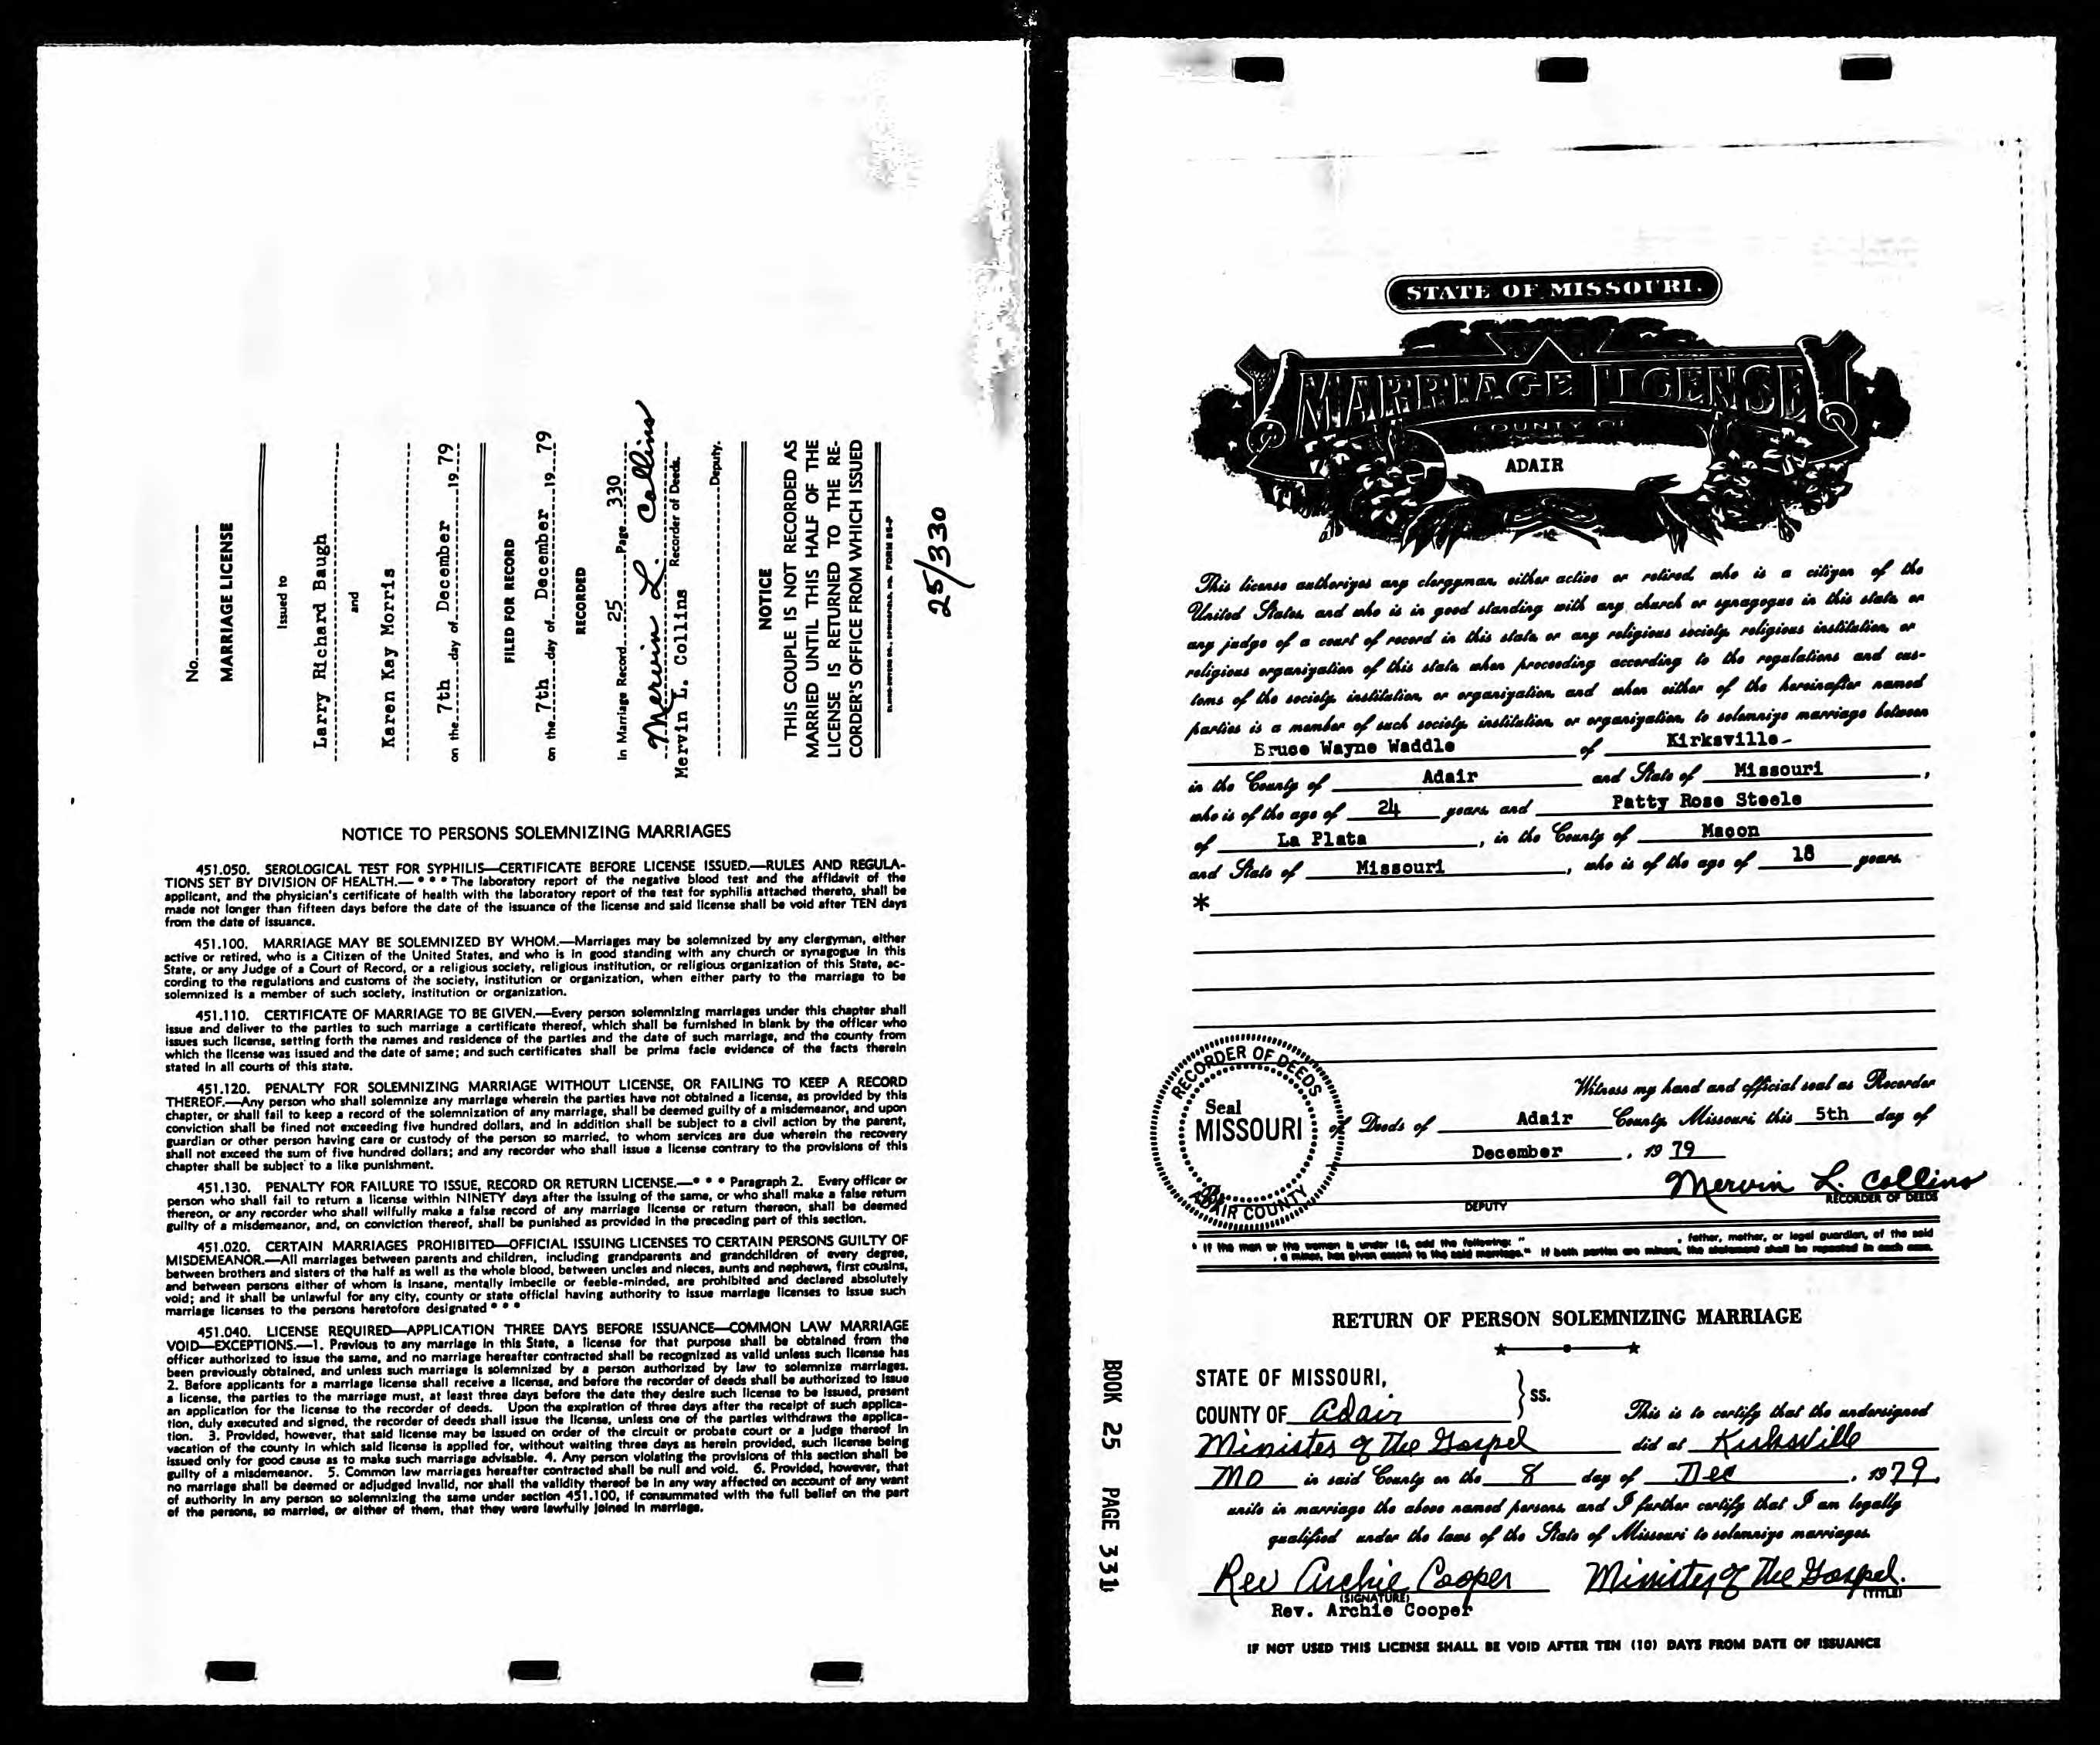 No.
MARRIAGE LICENSE
Issued to
Larry Richard Baugh
and
Karen Kay Morris
on the 7th day of December 19 79
FILED FOR RECORD
on the 7th day of December 19 79
RECORDED
In Marriage Record 25 Page 330
Mervin L. Collins
Mervin L. Collins Recorder of Deeds.
Deputy.
NOTICE
THIS COUPLE IS NOT RECORDED AS
MARRIED UNTIL THIS HALF OF THE
LICENSE IS RETURNED TO THE RE-
CORDER'S OFFICE FROM WHICH ISSUED
25/330
NOTICE TO PERSONS SOLEMNIZING MARRIAGES
451.050. SEROLOGICAL TEST FOR SYPHILIS—CERTIFICATE BEFORE LICENSE ISSUED.—RULES AND REGULA-
TIONS SET BY DIVISION OF HEALTH.— * * * The laboratory report of the negative blood test and the affidavit of the
applicant, and the physician's certificate of health with the laboratory report of the test for syphilis attached thereto, shall be
made not longer than fifteen days before the date of the issuance of the license and said license shall be void after TEN days
from the date of issuance.
451.100. MARRIAGE MAY BE SOLEMNIZED BY WHOM.—Marriages may be solemnized by any clergyman, either
active or retired, who is a Citizen of the United States, and who is in good standing with any church or synagogue in this
State, or any Judge of a Court of Record, or a religious society, religious institution, or religious organization of this State, ac-
cording to the regulations and customs of the society, institution or organization, when either party to the marriage to be
solemnized is a member of such society, institution or organization.
451.110. CERTIFICATE OF MARRIAGE TO BE GIVEN.—Every person solemnizing marriages under this chapter shall
issue and deliver to the parties to such marriage a certificate thereof, which shall be furnished in blank by the officer who
issues such license, setting forth the names and residence of the parties and the date of such marriage, and the county from
which the license was issued and the date of same; and such certificates shall be prima facie evidence of the facts therein
stated in all courts of this state.
451.120. PENALTY FOR SOLEMNIZING MARRIAGE WITHOUT LICENSE, OR FAILING TO KEEP A RECORD
THEREOF.—Any person who shall solemnize any marriage wherein the parties have not obtained a license, as provided by this
chapter, or shall fail to keep a record of the solemnization of any marriage, shall be deemed guilty of a misdemeanor, and upon
conviction shall be fined not exceeding five hundred dollars, and in addition shall be subject to a civil action by the parent,
guardian or other person having care or custody of the person so married, to whom services are due wherein the recovery
shall not exceed the sum of five hundred dollars; and any recorder who shall issue a license contrary to the provisions of this
chapter shall be subject to a like punishment.
451.130. PENALTY FOR FAILURE TO ISSUE, RECORD OR RETURN LICENSE.—* * * Paragraph 2. Every officer or
person who shall fail to return a license within NINETY days after the issuing of the same, or who shall make a false return
thereon, or any recorder who shall wilfully make a false record of any marriage license or return thereon, shall be deemed
guilty of a misdemeanor, and, on conviction thereof, shall be punished as provided in the preceding part of this section.
451.020. CERTAIN MARRIAGES PROHIBITED—OFFICIAL ISSUING LICENSES TO CERTAIN PERSONS GUILTY OF
MISDEMEANOR.—All marriages between parents and children, including grandparents and grandchildren of every degree,
between brothers and sisters of the half as well as the whole blood, between uncles and nieces, aunts and nephews, first cousins,
and between persons either of whom is insane, mentally imbecile or feeble-minded, are prohibited and declared absolutely
void; and it shall be unlawful for any city, county or state official having authority to issue marriage licenses to issue such
marriage licenses to the persons heretofore designated * * *
451.040. LICENSE REQUIRED—APPLICATION THREE DAYS BEFORE ISSUANCE—COMMON LAW MARRIAGE
VOID—EXCEPTIONS.—1. Previous to any marriage in this State, a license for that purpose shall be obtained from the
officer authorized to issue the same, and no marriage hereafter contracted shall be recognized as valid unless such license has
been previously obtained, and unless such marriage is solemnized by a person authorized by law to solemnize marriages.
2. Before applicants for a marriage license shall receive a license, and before the recorder of deeds shall be authorized to issue
a license, the parties to the marriage must, at least three days before the date they desire such license to be issued, present
an application for the license to the recorder of deeds. Upon the expiration of three days after the receipt of such applica-
tion, duly executed and signed, the recorder of deeds shall issue the license, unless one of the parties withdraws the applica-
tion. 3. Provided, however, that said license may be issued on order of the circuit or probate court or a judge thereof in
vacation of the county in which said license is applied for, without waiting three days as herein provided, such license being
issued only for good cause as to make such marriage advisable. 4. Any person violating the provisions of this section shall be
guilty of a misdemeanor. 5. Common law marriages hereafter contracted shall be null and void. 6. Provided, however, that
no marriage shall be deemed or adjudged invalid, nor shall the validity thereof be in any way affected on account of any want
of authority in any person so solemnizing the same under section 451.100, if consummated with the full belief on the part
of the persons, so married, or either of them, that they were lawfully joined in marriage.
STATE OF MISSOURI.
MARRIAGE LICENSE
COUNTY OF
ADAIR
This license authorizes any clergyman, either active or retired, who is a citizen of the
United States, and who is in good standing with any church or synagogue in this state, or
any judge of a court of record in this state, or any religious society, religious institution, or
religious organization of this state, when proceeding according to the regulations and cus-
toms of the society, institution, or organization, and when either of the hereinafter named
parties is a member of such society, institution, or organization, to solemnize marriage between
Bruce Wayne Waddle of Kirksville
in the County of Adair and State of Missouri,
who is of the age of 24 years, and Patty Rose Steele
of La Plata, in the County of Macon
and State of Missouri, who is of the age of 18 years.
*
Witness my hand and official seal as Recorder
RECORDER OF DEEDS
Seal
MISSOURI
ADAIR COUNTY
of Deeds of Adair County, Missouri this 5th day of
December, 19 79
Mervin L. Collins
By DEPUTY RECORDER OF DEEDS
* If the man or the woman is under 18, add the following: " , father, mother, or legal guardian, of the said
, a minor, has given assent to the said marriage." If both parties are minors, the statement shall be repeated in each case.
RETURN OF PERSON SOLEMNIZING MARRIAGE
STATE OF MISSOURI,
COUNTY OF Adair } SS.
This is to certify that the undersigned
Minister of The Gospel did at Kirksville
Mo in said County on the 8 day of Dec, 1979,
unite in marriage the above named persons, and I further certify that I am legally
qualified under the laws of the State of Missouri to solemnize marriages.
Rev Archie Cooper Minister of The Gospel.
(SIGNATURE) (TITLE)
Rev. Archie Cooper
IF NOT USED THIS LICENSE SHALL BE VOID AFTER TEN (10) DAYS FROM DATE OF ISSUANCE
BOOK 25 PAGE 331